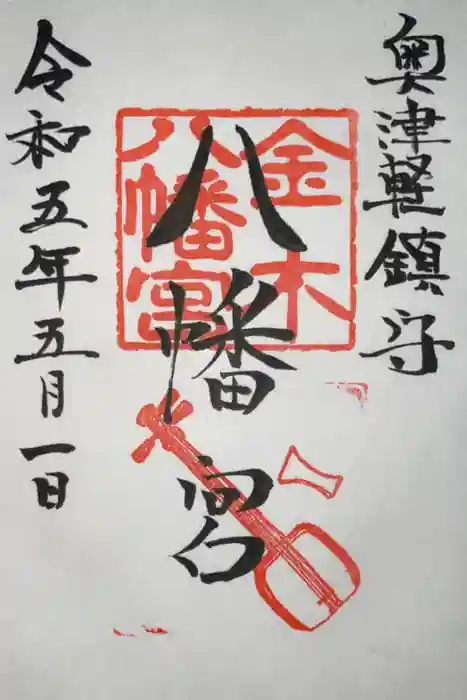 奥津軽鎮守
金木
八幡宮
八幡宮
令和五年五月一日